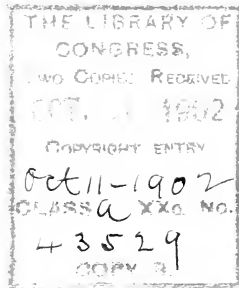 THE LIBRARY OF
CONGRESS,
TWO COPIES RECEIVED
OCT. 1902
COPYRIGHT ENTRY
Oct 11-1902
CLASS a XXc. No.
43529
COPY B.